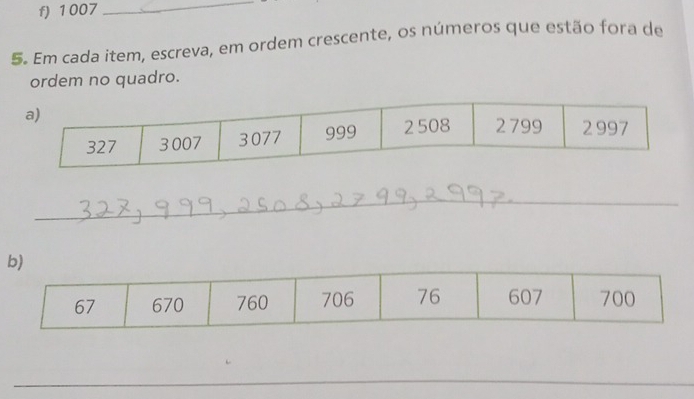 f) 1 007
5. Em cada item, escreva, em ordem crescente, os números que estão fora de
ordem no quadro.
a)
327 3 007 3 077 999 2 508 2 799 2 997
327, 999, 2508, 2799, 2997.
b)
67 670 760 706 76 607 700